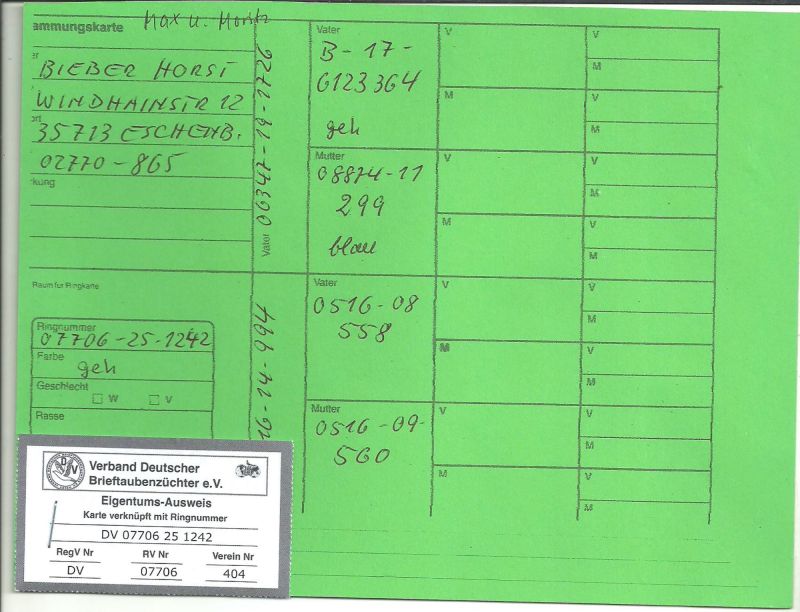 ammungskarte Max u. Moritz
er
BIEBER HORST
WINDHAINSTR 12
ort
35713 ESCHENB.
02770-865
kung
Vater 06347-19-1726
Vater
B-17-
6123364
geh
Mutter
08874-11
299
blau
Raum für Ringkarte
Ringnummer
07706-25-1242
Farbe
geh
Geschlecht
W V
Rasse
16-14-994
Vater
0516-08
558
Mutter
0516-09-
560
V
M
V
M
V
M
V
M
V
M
V
M
V
M
V
M
V
M
V
M
V
M
V
M
Verband Deutscher
Brieftaubenzüchter e.V.
Eigentums-Ausweis
Karte verknüpft mit Ringnummer
DV 07706 25 1242
RegV Nr RV Nr Verein Nr
DV 07706 404